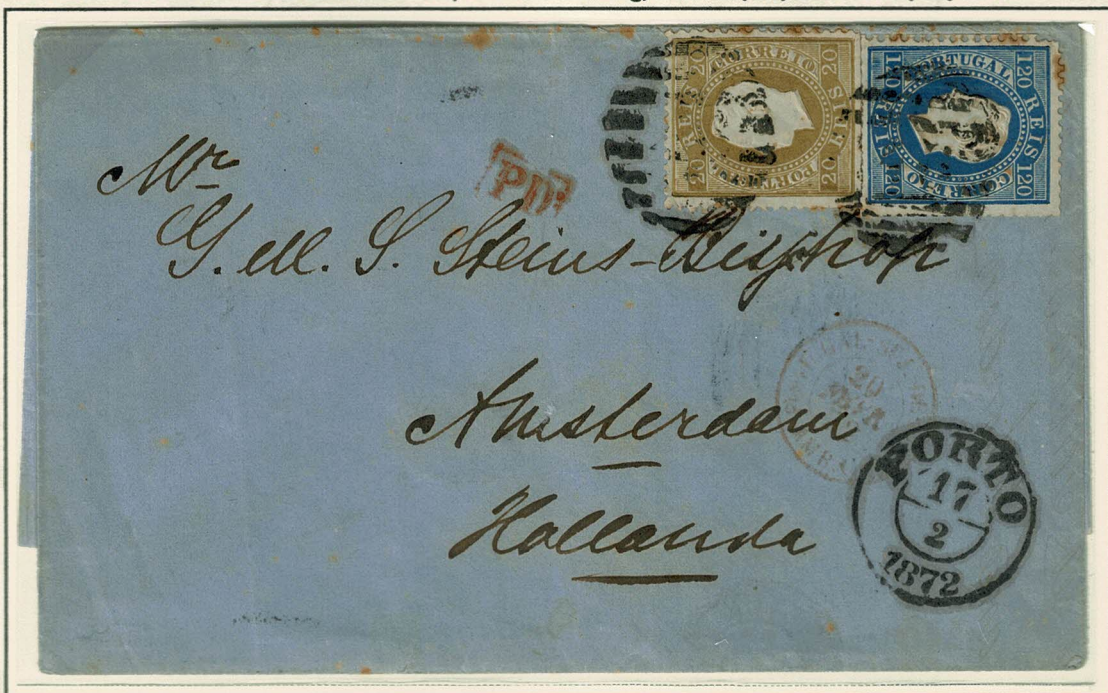 20 CORREIO 20
REIS
REIS
20 PORTUGAL 20
PORTUGAL
120 REIS 120
120 REIS 120
CORREIO
PD
Mr
G. M. S. Steins-Bisschop
Amsterdam
Hollanda
20
PORTO
17
2
1872